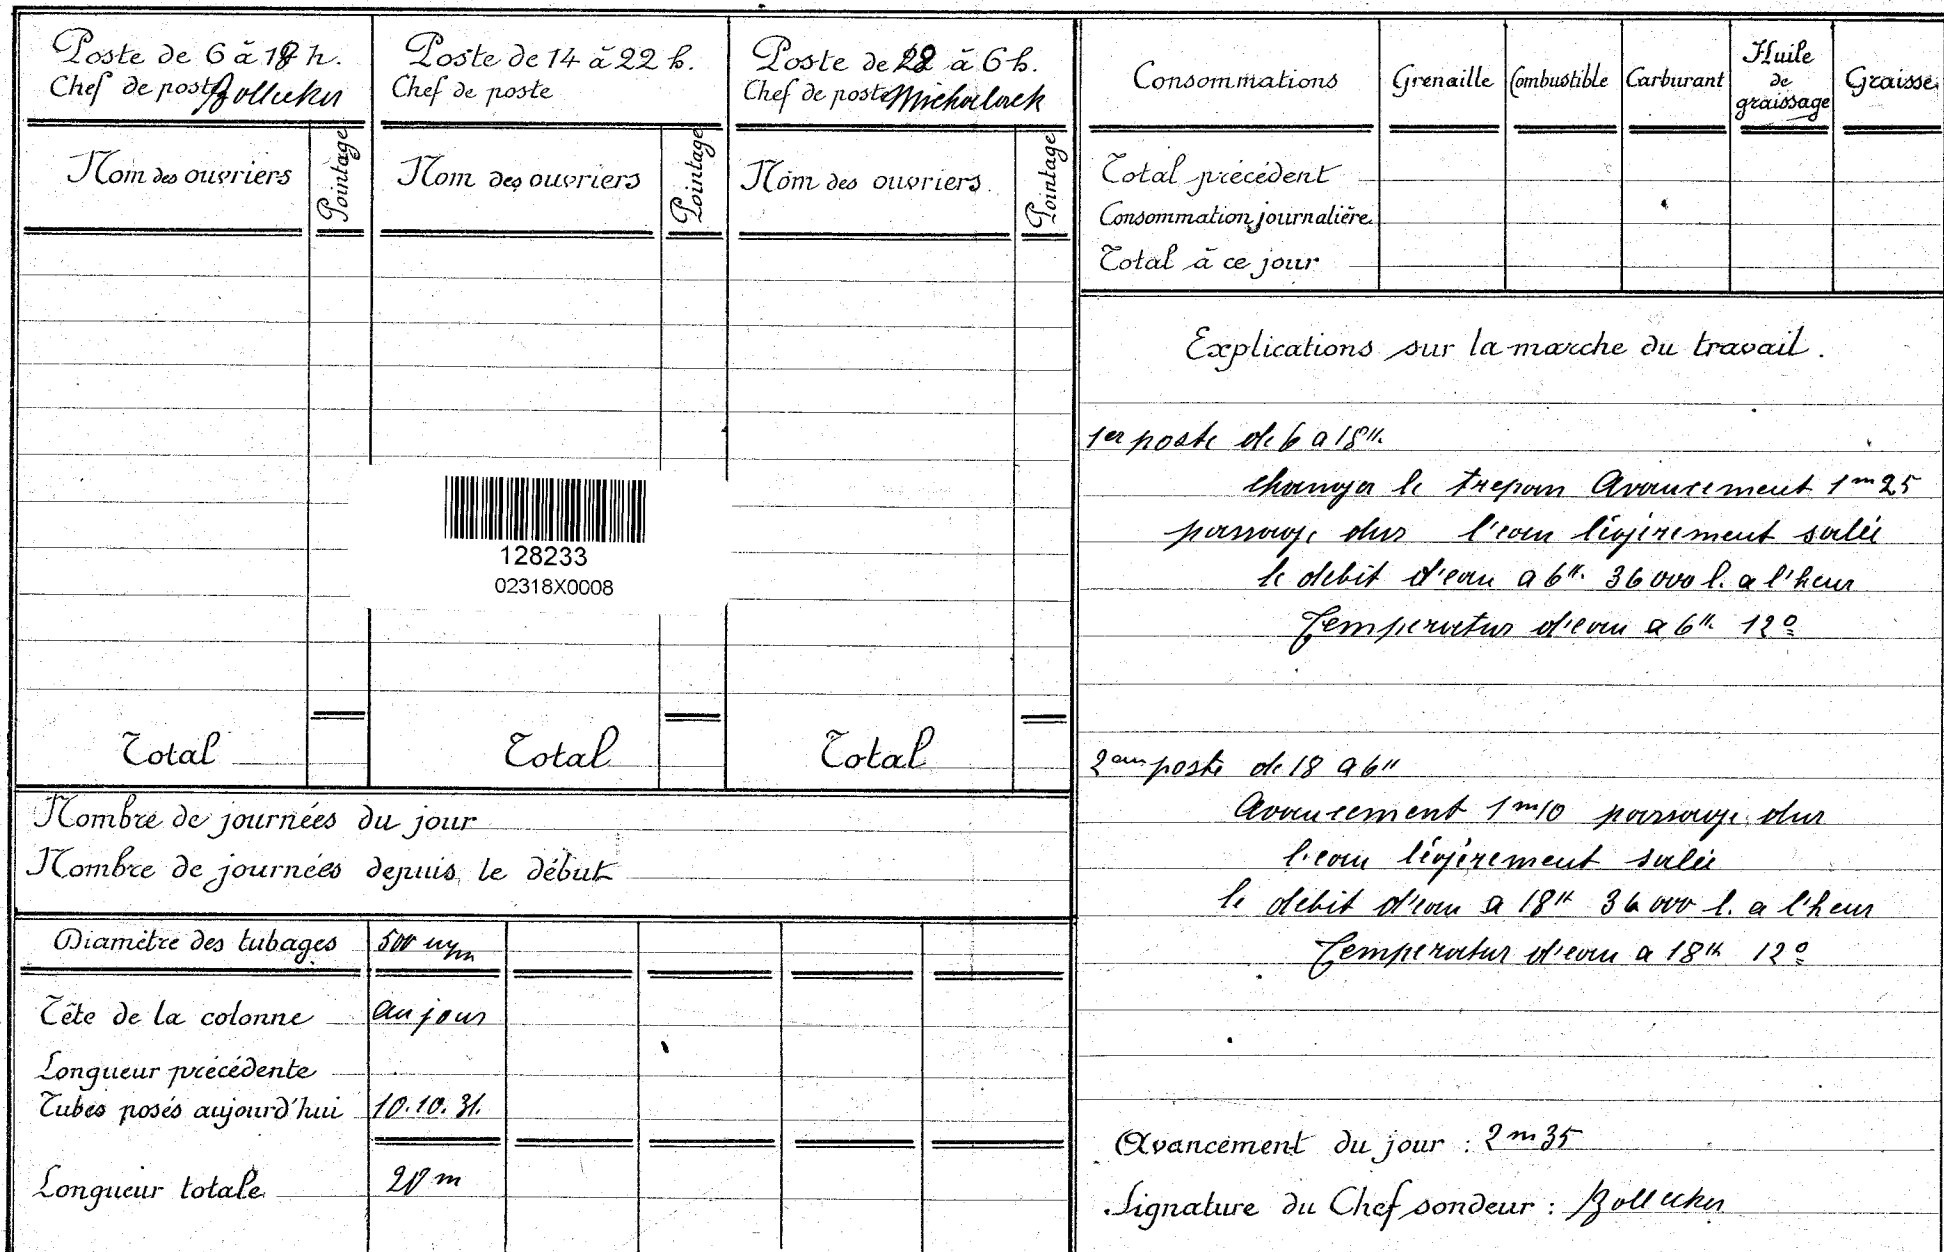 Poste de 6 à 18 h.
Chef de poste Bollecker
Poste de 14 à 22 h.
Chef de poste
Poste de 18 à 6 h.
Chef de poste Michalack
Nom des ouvriers
Pointage
Nom des ouvriers
Pointage
Nom des ouvriers
Pointage
Total
Total
Total
128233
02318X0008
Nombre de journées du jour
Nombre de journées depuis le début
Diamètre des tubages 500 mm
Tête de la colonne au jour
Longueur précédente
Tubes posés aujourd'hui 10.10.31.
Longueur totale 20 m
Consommations Grenaille Combustible Carburant Huile de graissage Graisse
Total précédent
Consommation journalière
Total à ce jour
Explications sur la marche du travail.
1er poste de 6 a 18h
changer le trepan Avancement 1m25
passage dur l'eau légèrement salée
le debit d'eau a 6h. 36000 l. a l'heur
Temperatur d'eau a 6h. 12º
2em poste de 18 a 6h
Avancement 1m10 passage dur
l'eau légèrement salée
le debit d'eau a 18h 36000 l. a l'heur
Temperatur d'eau a 18h 12º
Avancement du jour : 2m35
Signature du Chef sondeur : Bollecker